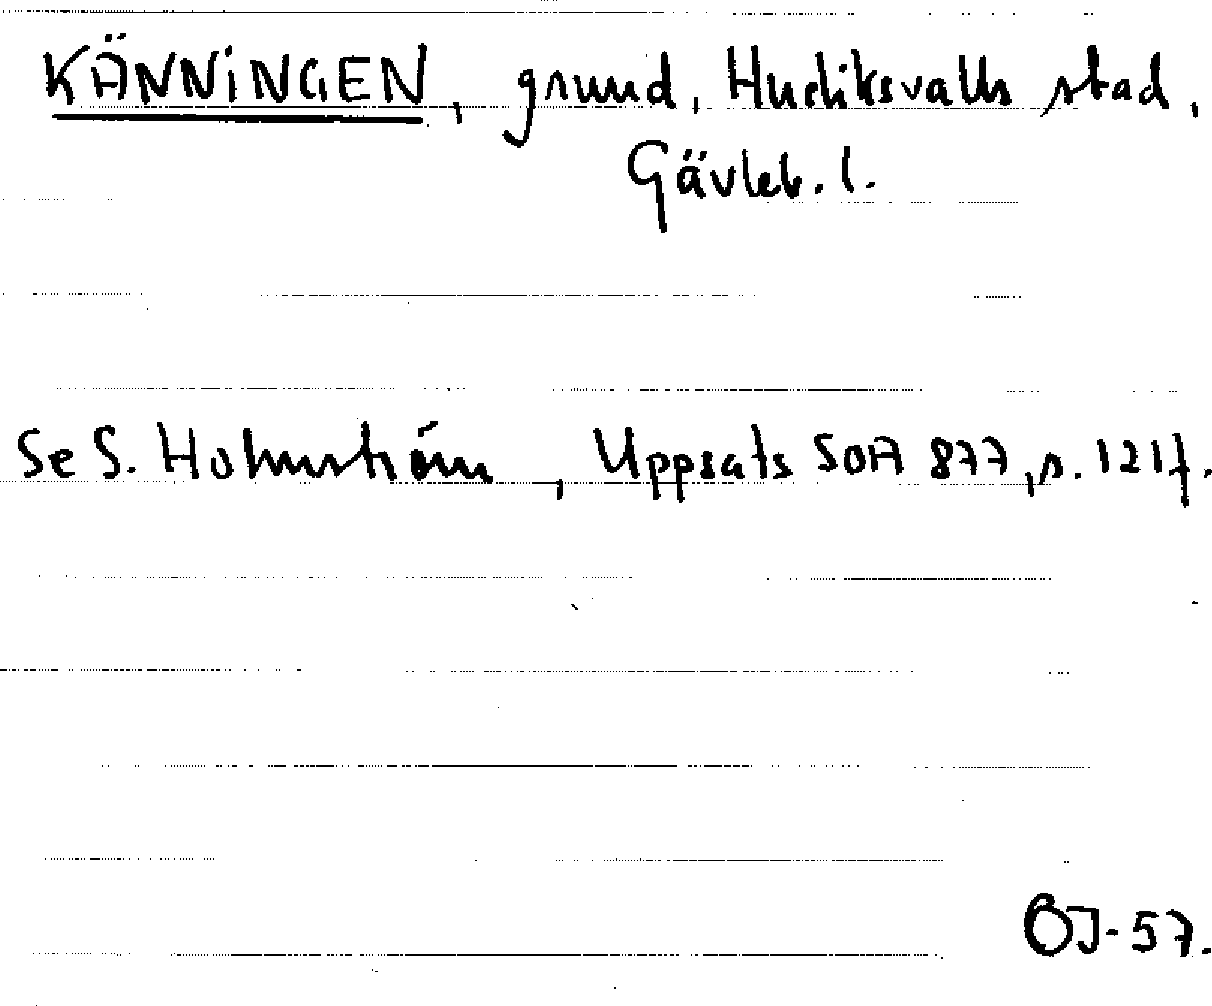 KÄNNINGEN, grund, Hudiksvalls stad,
Gävleb. l.
Se S. Holmström, Uppsats SOA 877, s. 121f.
BJ-57.